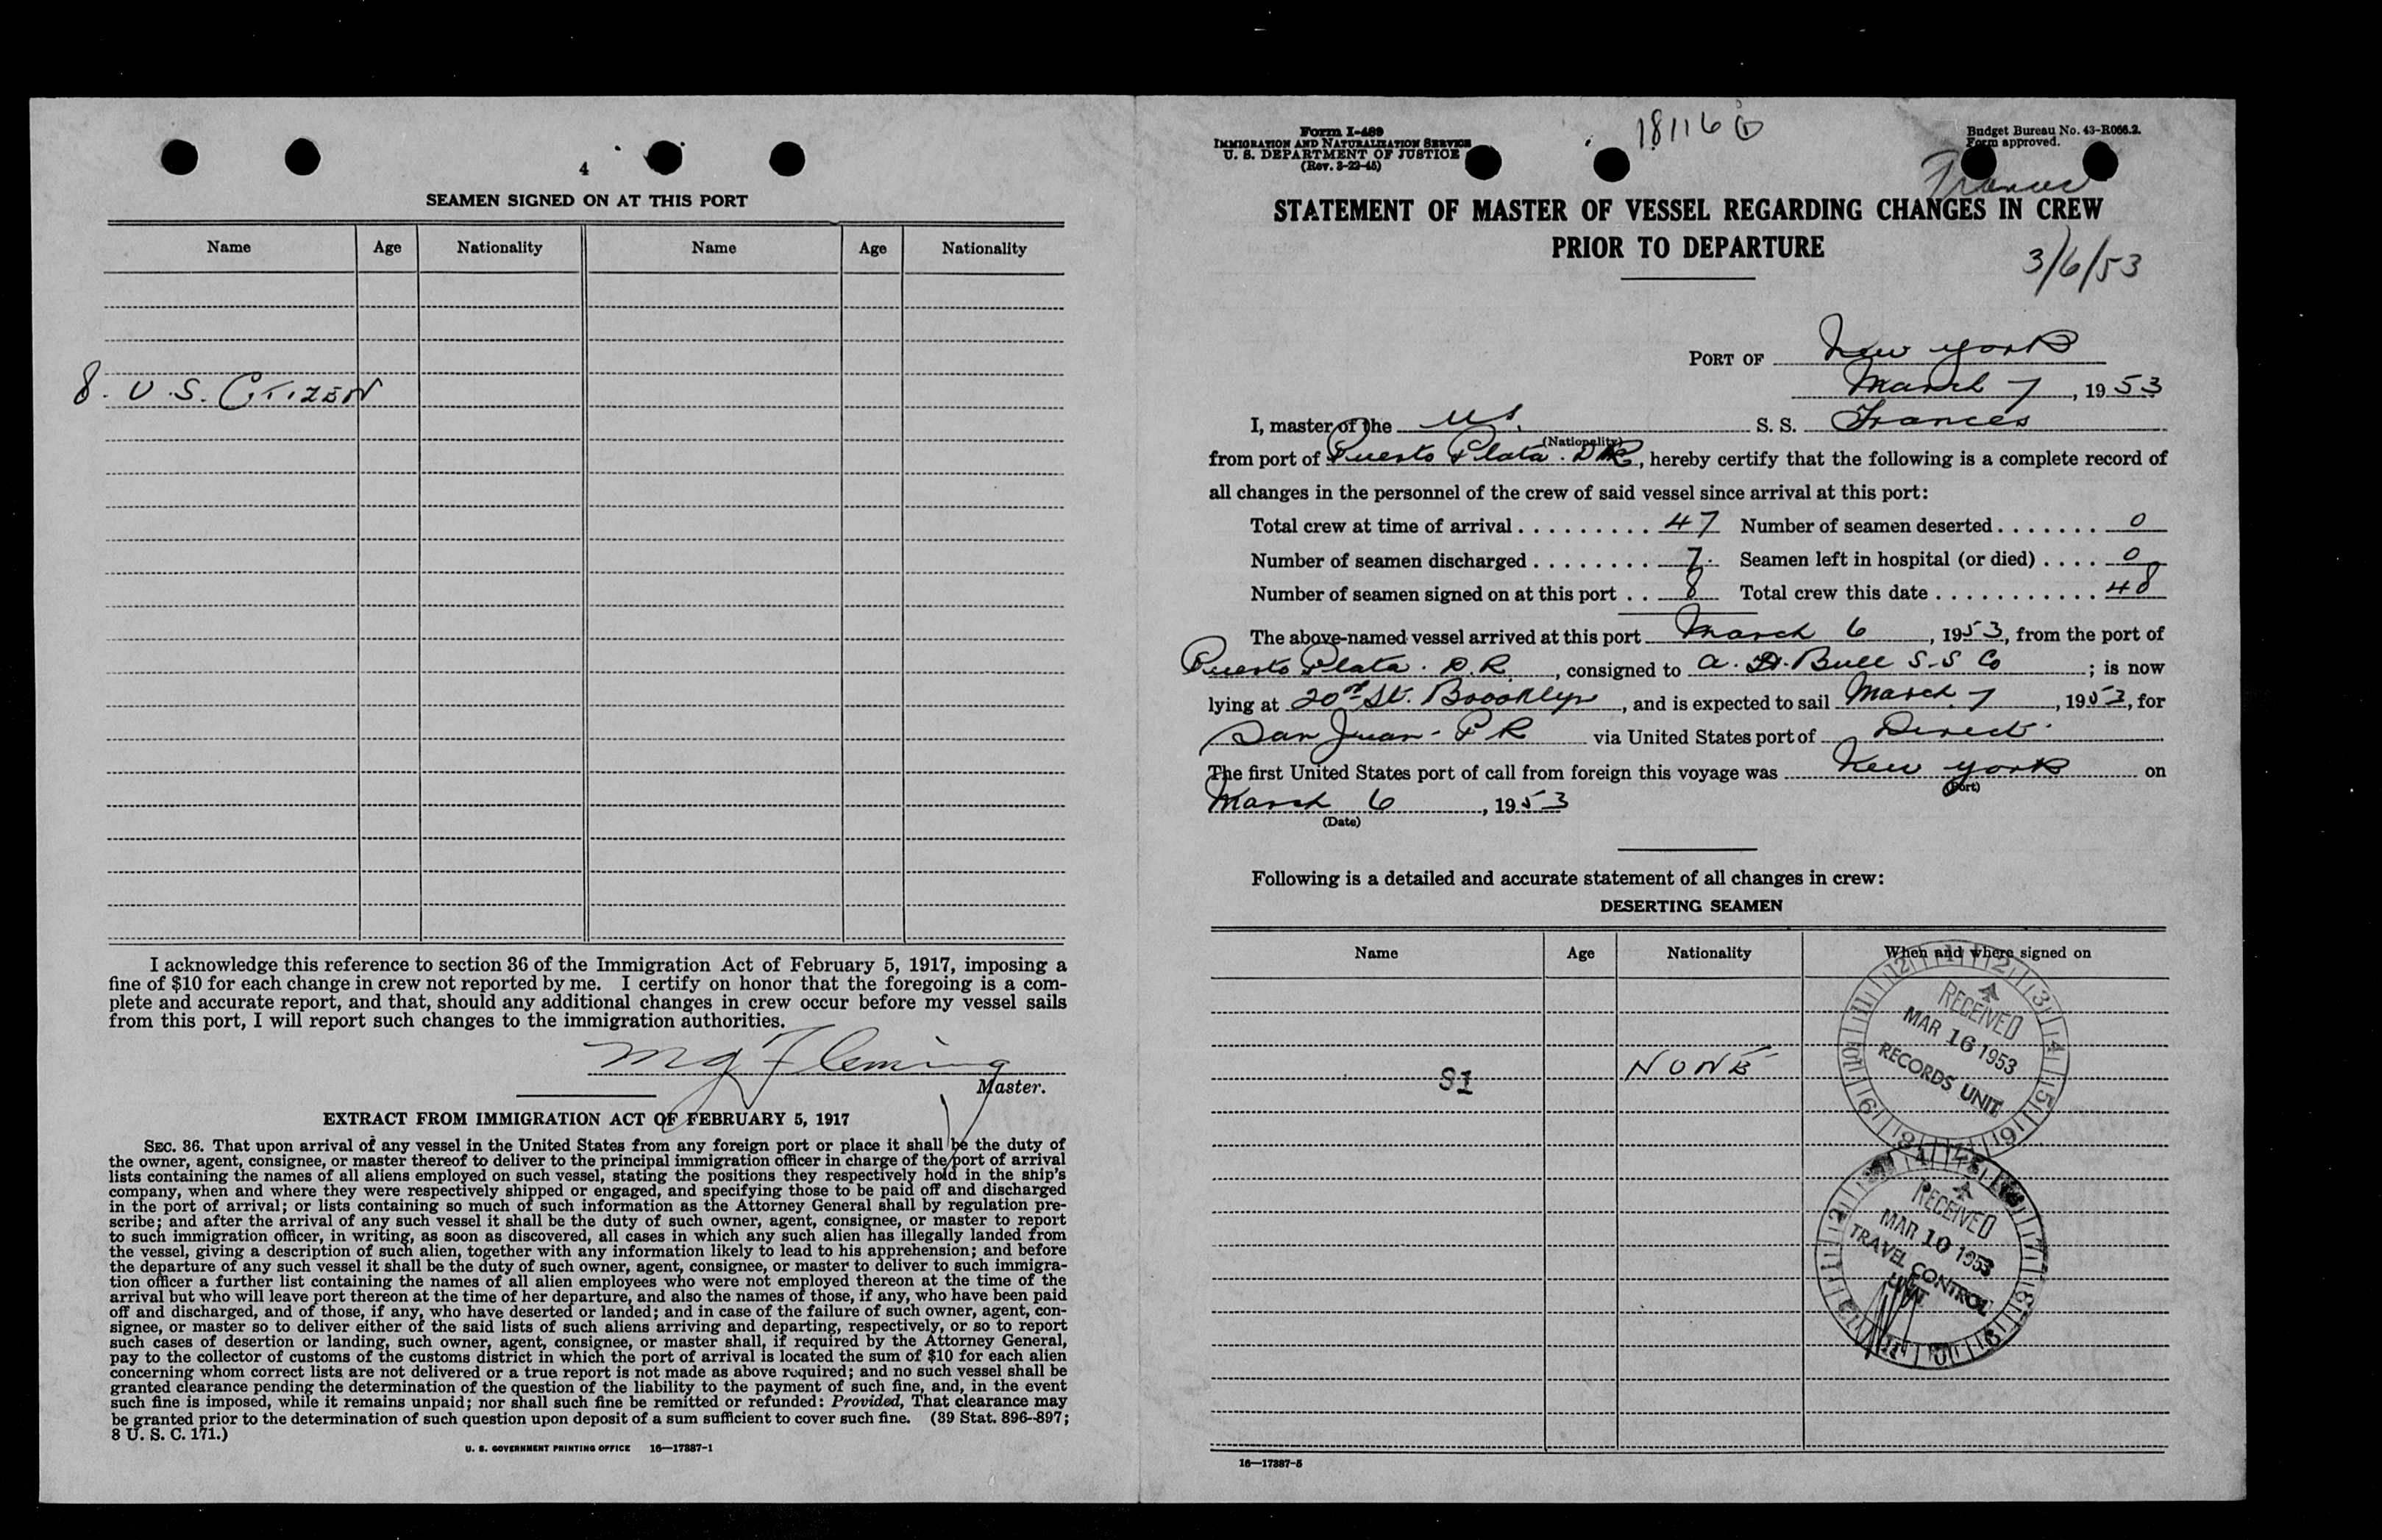 4
SEAMEN SIGNED ON AT THIS PORT
Name Age Nationality Name Age Nationality
8. U.S. CITIZEN
I acknowledge this reference to section 36 of the Immigration Act of February 5, 1917, imposing a
fine of $10 for each change in crew not reported by me. I certify on honor that the foregoing is a com-
plete and accurate report, and that, should any additional changes in crew occur before my vessel sails
from this port, I will report such changes to the immigration authorities.
M G Fleming
Master.
EXTRACT FROM IMMIGRATION ACT OF FEBRUARY 5, 1917
SEC. 36. That upon arrival of any vessel in the United States from any foreign port or place it shall be the duty of
the owner, agent, consignee, or master thereof to deliver to the principal immigration officer in charge of the port of arrival
lists containing the names of all aliens employed on such vessel, stating the positions they respectively hold in the ship's
company, when and where they were respectively shipped or engaged, and specifying those to be paid off and discharged
in the port of arrival; or lists containing so much of such information as the Attorney General shall by regulation pre-
scribe; and after the arrival of any such vessel it shall be the duty of such owner, agent, consignee, or master to report
to such immigration officer, in writing, as soon as discovered, all cases in which any such alien has illegally landed from
the vessel, giving a description of such alien, together with any information likely to lead to his apprehension; and before
the departure of any such vessel it shall be the duty of such owner, agent, consignee, or master to deliver to such immigra-
tion officer a further list containing the names of all alien employees who were not employed thereon at the time of the
arrival but who will leave port thereon at the time of her departure, and also the names of those, if any, who have been paid
off and discharged, and of those, if any, who have deserted or landed; and in case of the failure of such owner, agent, con-
signee, or master so to deliver either of the said lists of such aliens arriving and departing, respectively, or so to report
such cases of desertion or landing, such owner, agent, consignee, or master shall, if required by the Attorney General,
pay to the collector of customs of the customs district in which the port of arrival is located the sum of $10 for each alien
concerning whom correct lists are not delivered or a true report is not made as above required; and no such vessel shall be
granted clearance pending the determination of the question of the liability to the payment of such fine, and, in the event
such fine is imposed, while it remains unpaid; nor shall such fine be remitted or refunded: Provided, That clearance may
be granted prior to the determination of such question upon deposit of a sum sufficient to cover such fine. (39 Stat. 896-897;
8 U. S. C. 171.)
U. S. GOVERNMENT PRINTING OFFICE 16—17387-1
Form I-489
IMMIGRATION AND NATURALIZATION SERVICE
U. S. DEPARTMENT OF JUSTICE
(Rev. 3-22-45)
18116
Budget Bureau No. 43-R066.2.
Form approved.
Frances
STATEMENT OF MASTER OF VESSEL REGARDING CHANGES IN CREW
PRIOR TO DEPARTURE
3/6/53
PORT OF New York
March 7, 1953
I, master of the U.S. S. S. Frances
(Nationality)
from port of Puerto Plata. D R, hereby certify that the following is a complete record of
all changes in the personnel of the crew of said vessel since arrival at this port:
Total crew at time of arrival . . . . . . . . . 47 Number of seamen deserted . . . . . . . 0
Number of seamen discharged . . . . . . . . 7. Seamen left in hospital (or died) . . . . 0
Number of seamen signed on at this port . . 8 Total crew this date . . . . . . . . . . . 48
The above-named vessel arrived at this port March 6, 1953, from the port of
Puerto Plata. D.R., consigned to A. H. Bull S-S Co; is now
lying at 20th St. Brooklyn, and is expected to sail March 7, 1953, for
San Juan - P R via United States port of Direct.
The first United States port of call from foreign this voyage was New York on
(Port)
March 6, 1953
(Date)
Following is a detailed and accurate statement of all changes in crew:
DESERTING SEAMEN
Name Age Nationality When and where signed on
S1 NONE
RECEIVED
MAR 16 1953
RECORDS UNIT
RECEIVED
MAR 10 1953
TRAVEL CONTROL
UNIT
16—17387-5